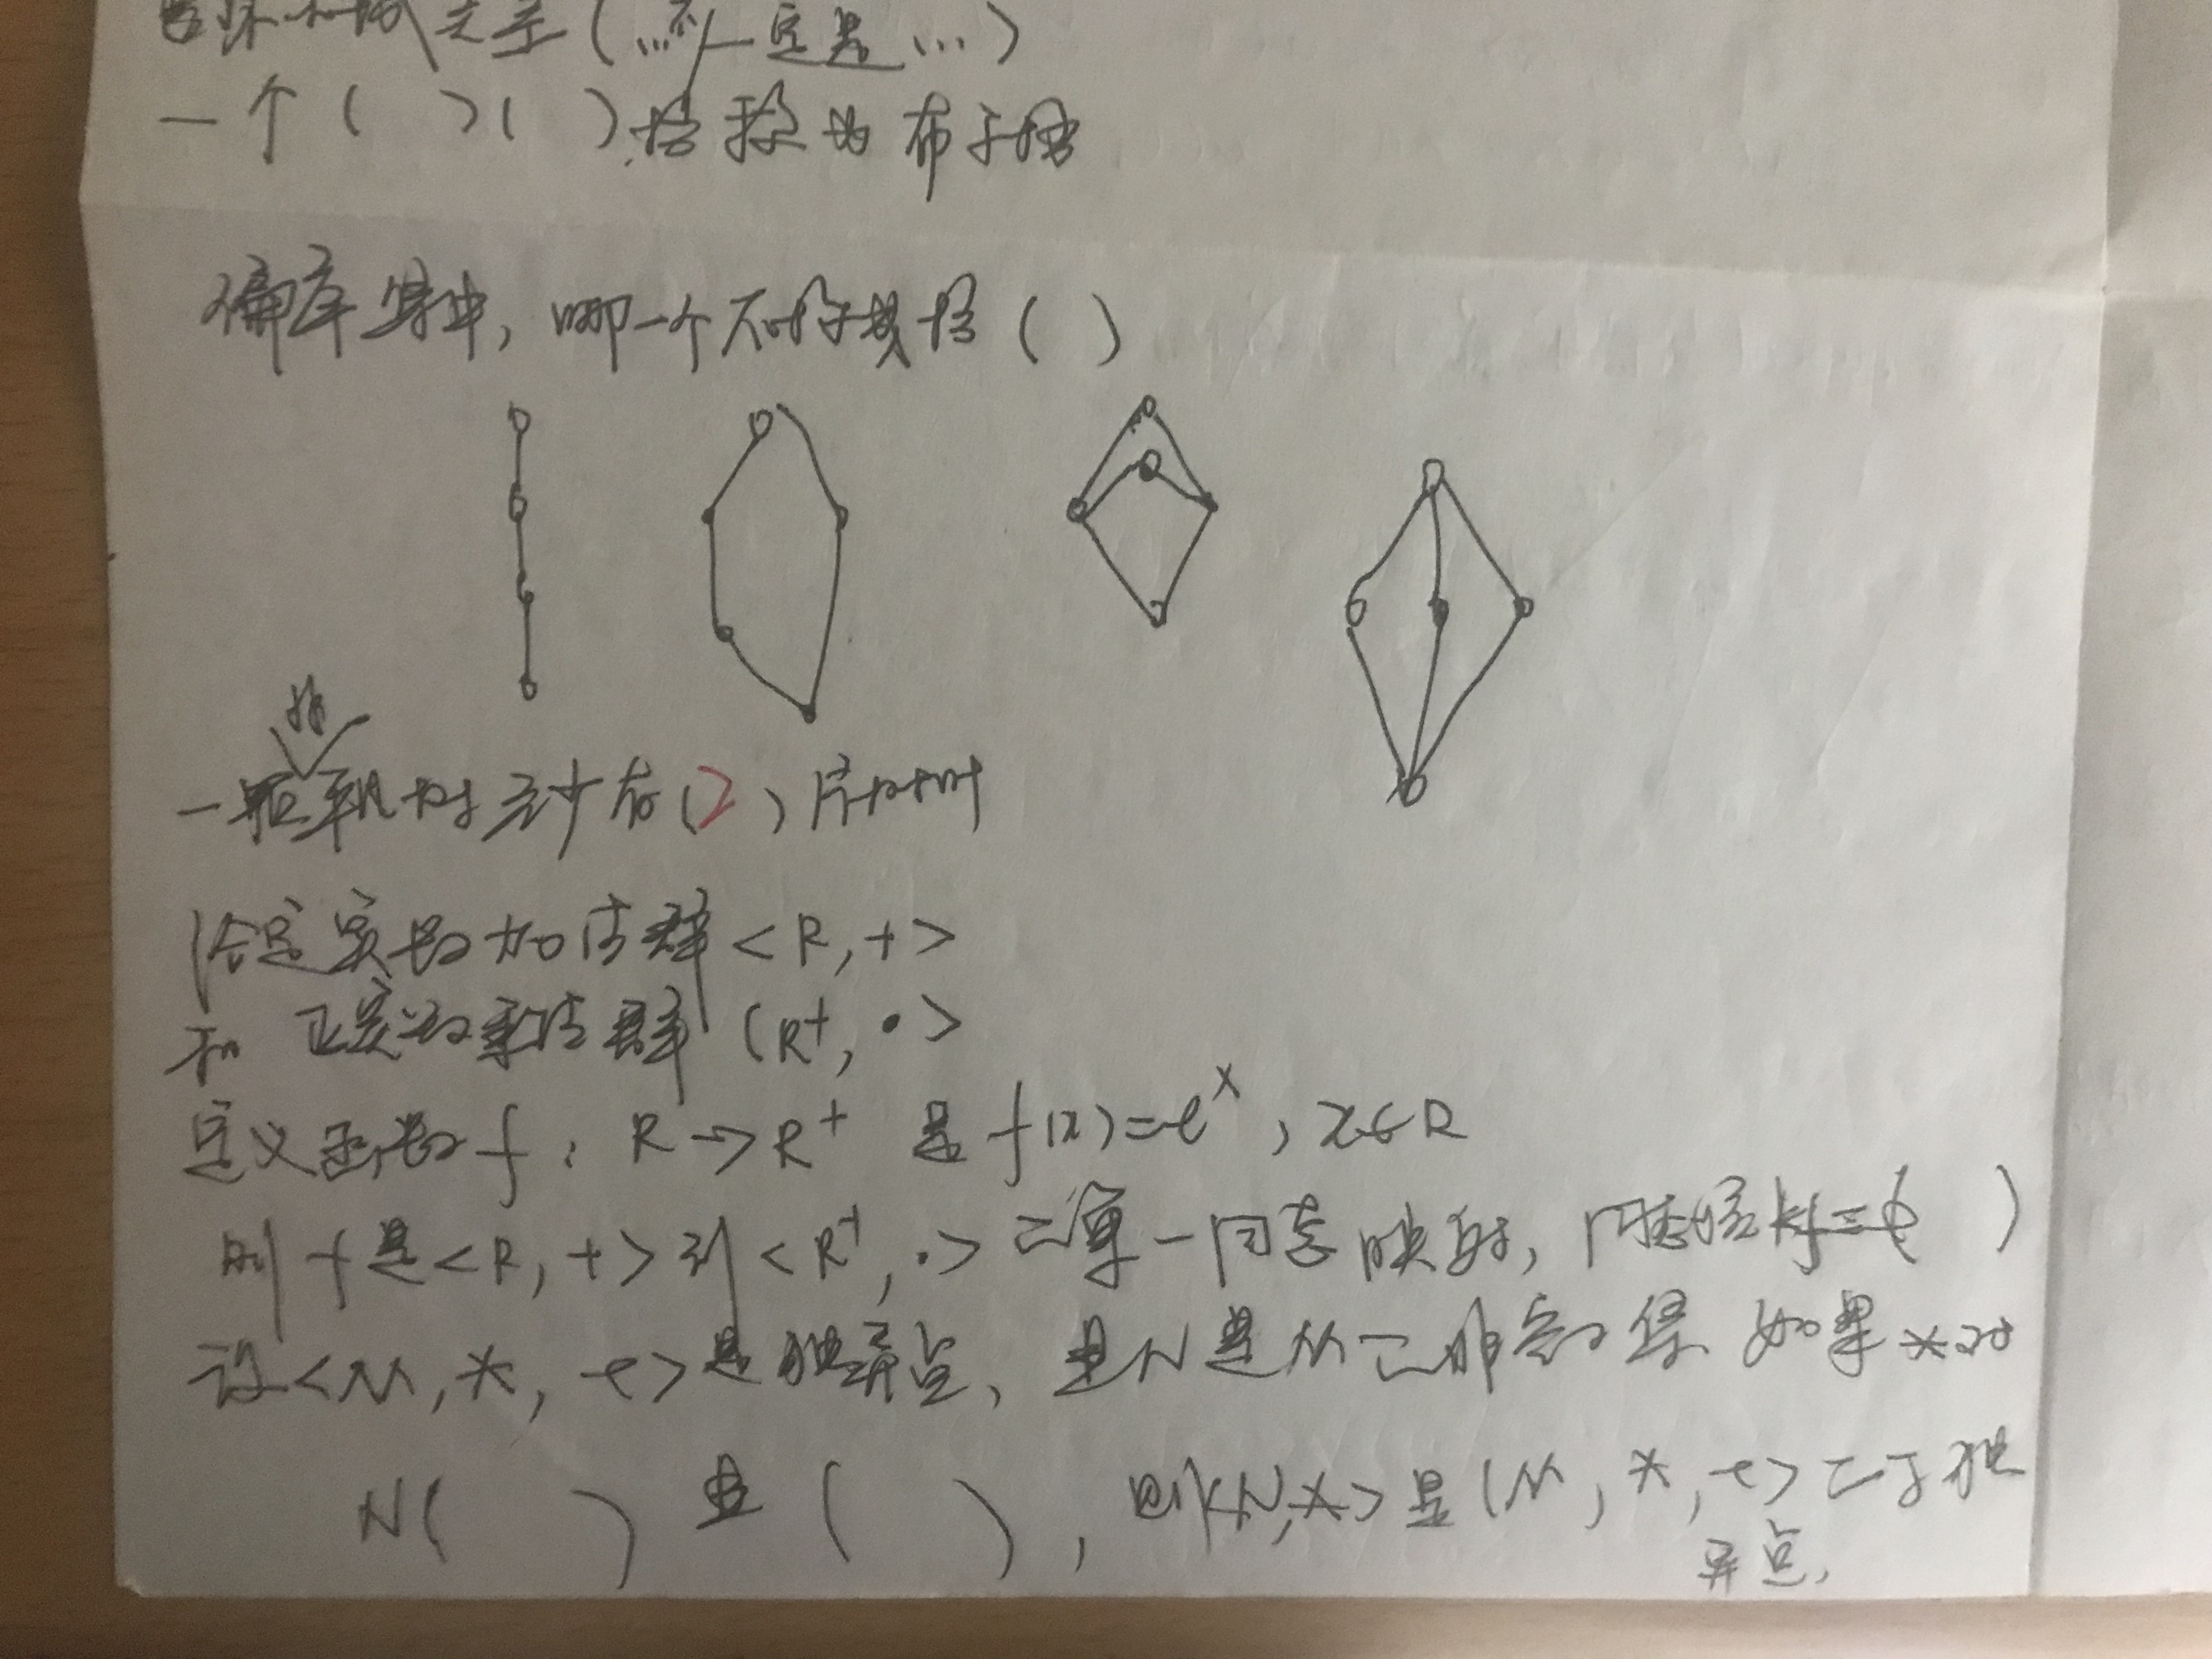 (…不一定是…)
一个( )( )格称为布尔格
偏序集中,哪一个不构成格( )
的
一棵平凡树至少有(2)片树叶
给定实数加法群<R,+>
和 正实数乘法群 (R⁺,•>
定义函数f: R→R⁺ 是f(x)=eˣ,x∈R
则 f是<R,+>到<R⁺,·>之单一同态映射,同态核 )
设<M,*,e>是独异点,且N是M之非空子集 如果*对
N( ) 且( ),则<N,*>是(M,*,e>之子独
异点.